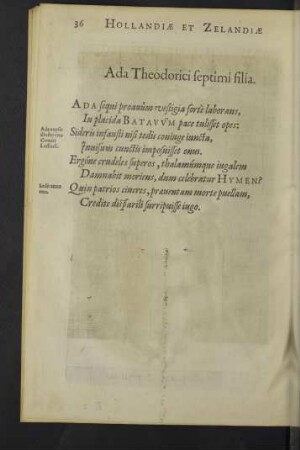 36 HOLLANDIÆ ET ZELANDIÆ
Ada Theodorici septimi filia.
ADA sequi proauûm vestigia
In placida BATAVVM pace tulisset opes:
Sideris infausti nisi tedis coniuge iuncta,
Inuisum cunctis imposuisset onus.
Ergóne crudeles superos, thalamúmque iugalem
Damnabit moriens, dum celebratur HYMEN?
Quin patrios cineres, prauentam morte puellam,
Credite disparili surripuisse iugo.